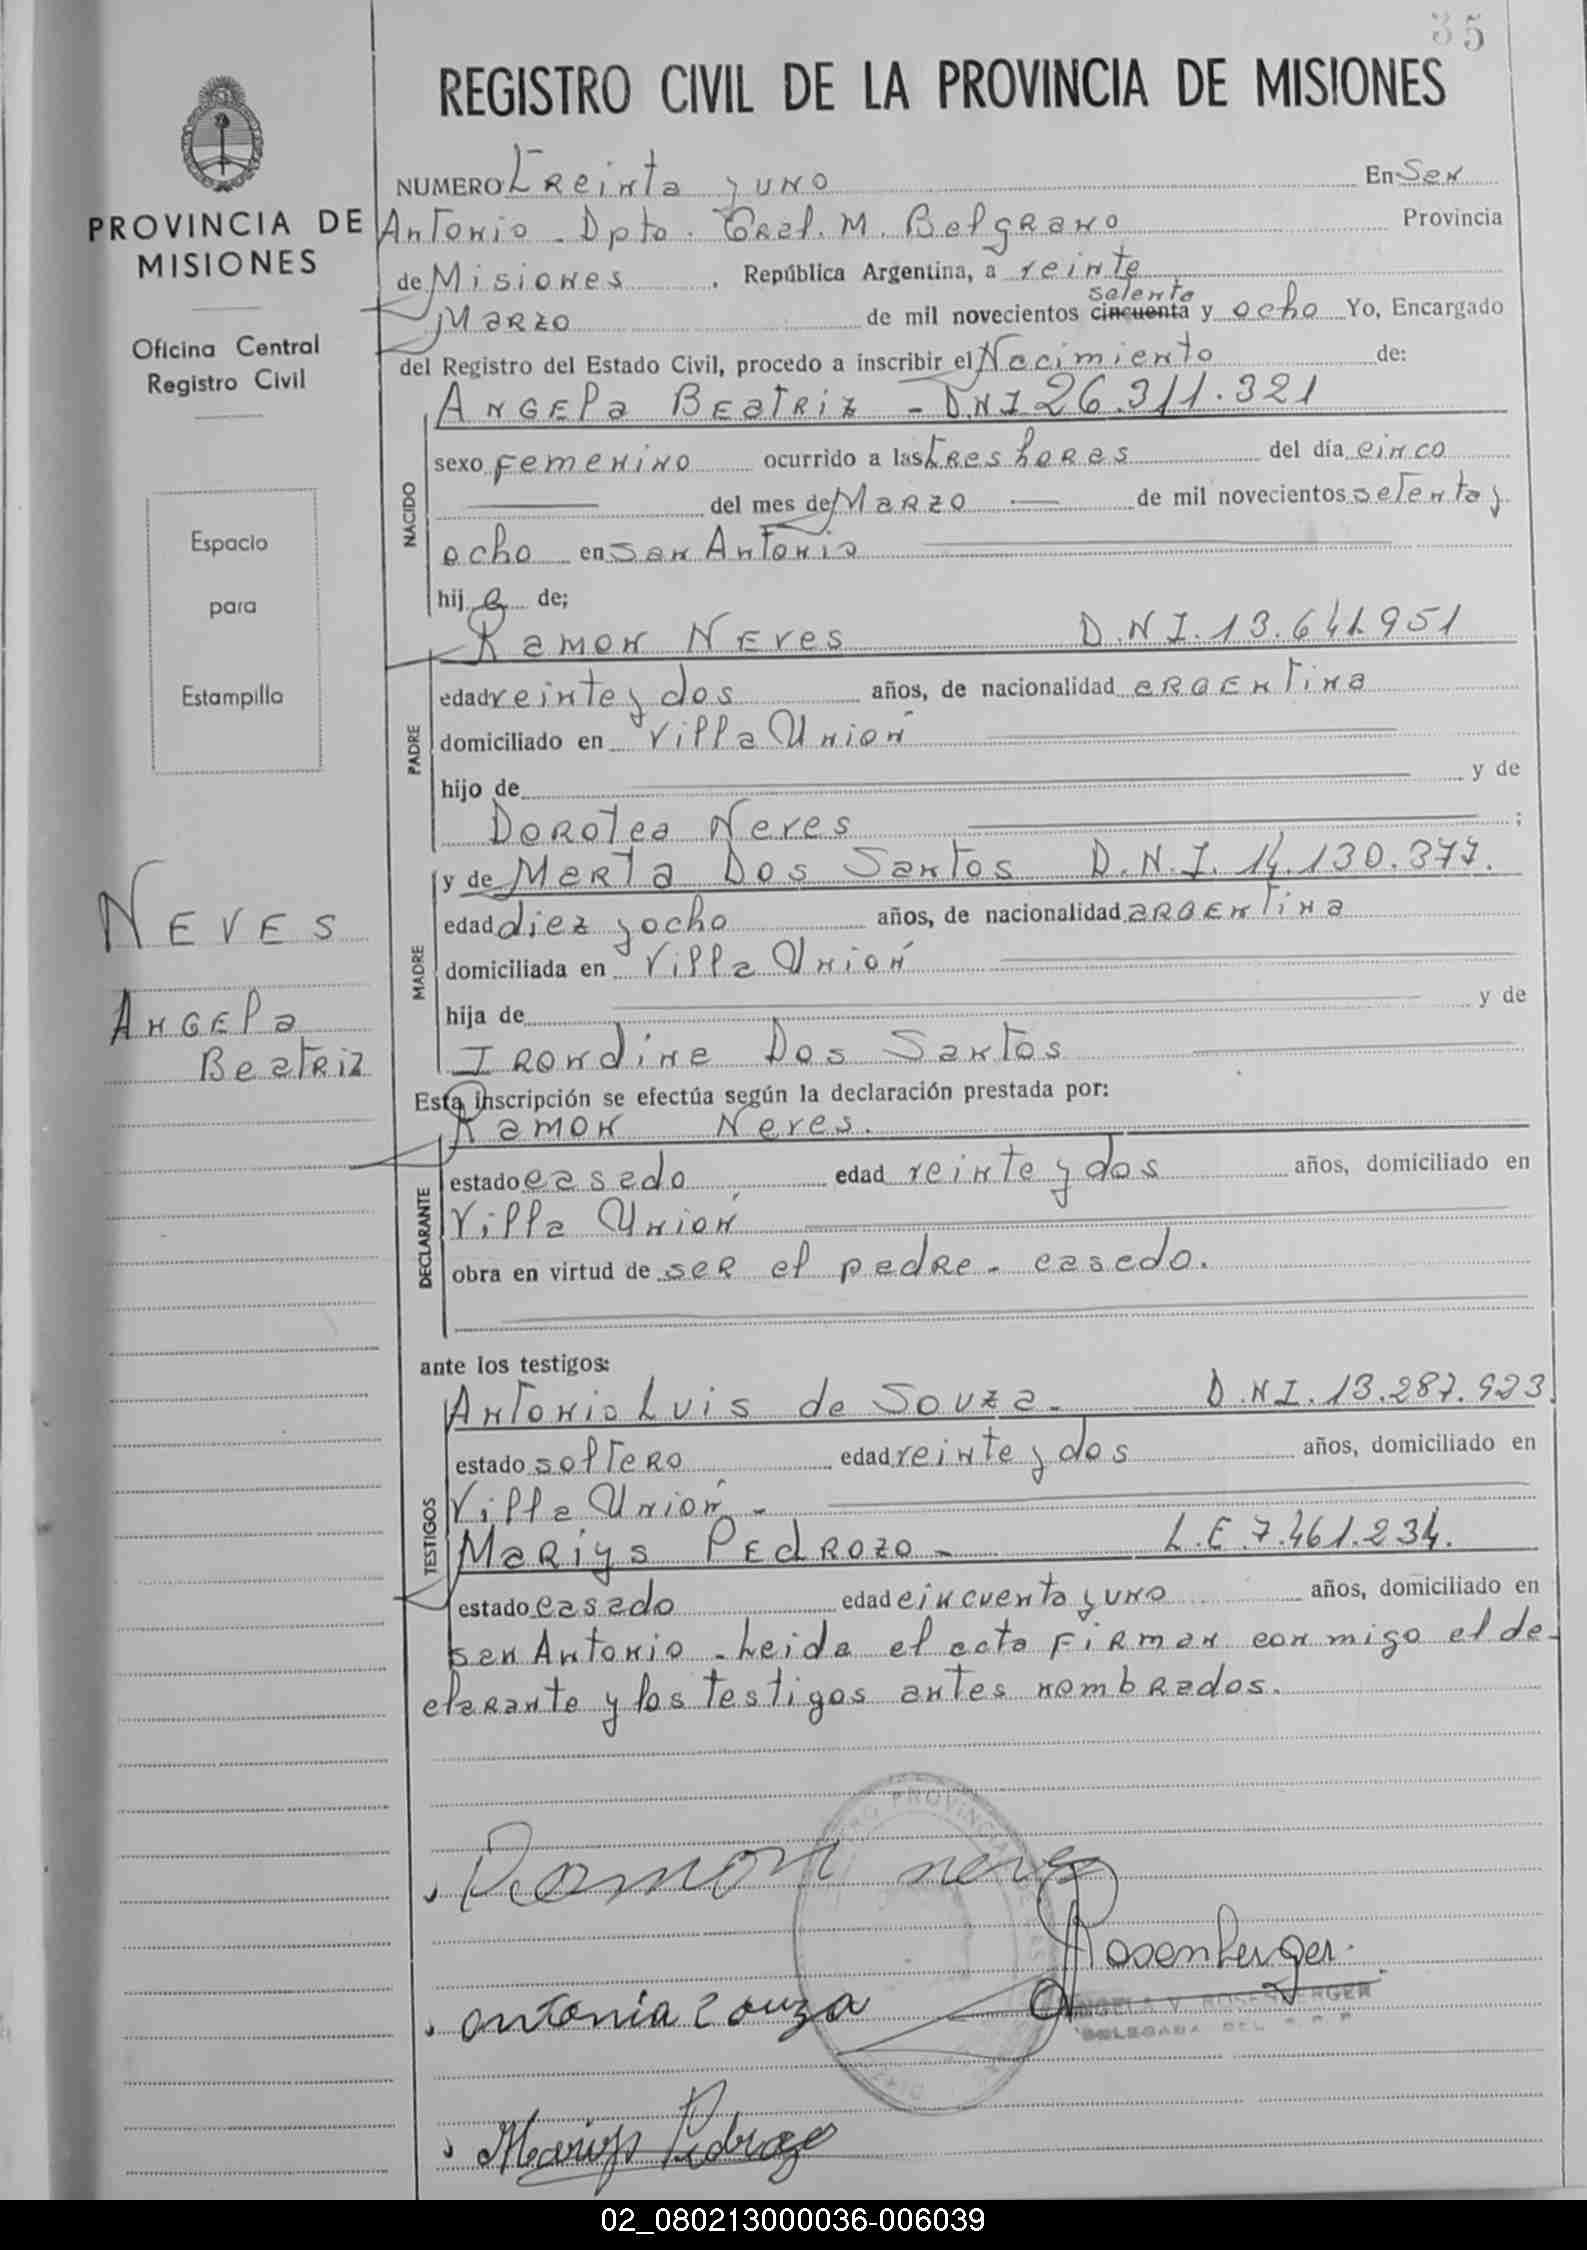 35
REGISTRO CIVIL DE LA PROVINCIA DE MISIONES
PROVINCIA DE
MISIONES
Oficina Central
Registro Civil
Espacio
para
Estampilla
NEVES
Angela
Beatriz
NUMERO Treinta y uno En San
Antonio - Dpto. Gral. M. Belgrano Provincia
de Misiones, República Argentina, a veinte
setenta
Marzo de mil novecientos cincuenta y ocho Yo, Encargado
del Registro del Estado Civil, procedo a inscribir el Nacimiento de:
NACIDO
Angela Beatriz - D.N.I 26.311.321
sexo femenino ocurrido a las tres horas del día cinco
del mes de Marzo de mil novecientos setenta y
ocho en San Antonio
hij a de;
PADRE
Ramon Neves D.N.I. 13.641.951
edad veinte y dos años, de nacionalidad argentina
domiciliado en Villa Unión
hijo de y de
Dorotea Neves ;
MADRE
y de Marta Dos Santos D.N.I. 14.130.377.
edad diez y ocho años, de nacionalidad argentina
domiciliada en Villa Unión
hija de y de
Irondine Dos Santos
Esta inscripción se efectúa según la declaración prestada por:
DECLARANTE
Ramon Neves.
estado casado edad veinte y dos años, domiciliado en
Villa Unión
obra en virtud de ser el padre - casado.
ante los testigos:
TESTIGOS
Antonio Luis de Souza - D.N.I. 13.287.923.
estado soltero edad veinte y dos años, domiciliado en
Villa Unión -
Mariys Pedrozo - L.E. 7.461.234.
estado casado edad cincuenta y uno años, domiciliado en
San Antonio - Leida el acta firman conmigo el de-
clarante y los testigos antes nombrados.
Ramon neves
Rosenberger
antonia Souza
ANGELA V. ROSENBERGER
DELEGADA DEL R.P.P
Mariys Pedrozo
02_080213000036-006039